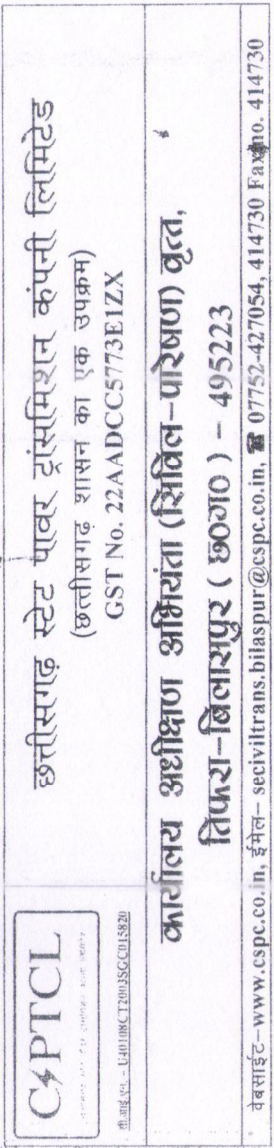 CSPTCL
सी.आई.एन. - U40108CT2003SGC015820
छत्तीसगढ़ स्टेट पावर ट्रांसमिशन कंपनी लिमिटेड
(छत्तीसगढ़ शासन का एक उपक्रम)
GST No. 22AADCC5773E1ZX
कार्यालय अधीक्षण अभियंता (सिविल-पारेषण) वृत्त,
तिफरा-बिलासपुर ( छ0ग0 ) - 495223
वेबसाईट-www.cspc.co.in, ईमेल- seciviltrans.bilaspur@cspc.co.in, ☎ 07752-427054, 414730 Fax no. 414730